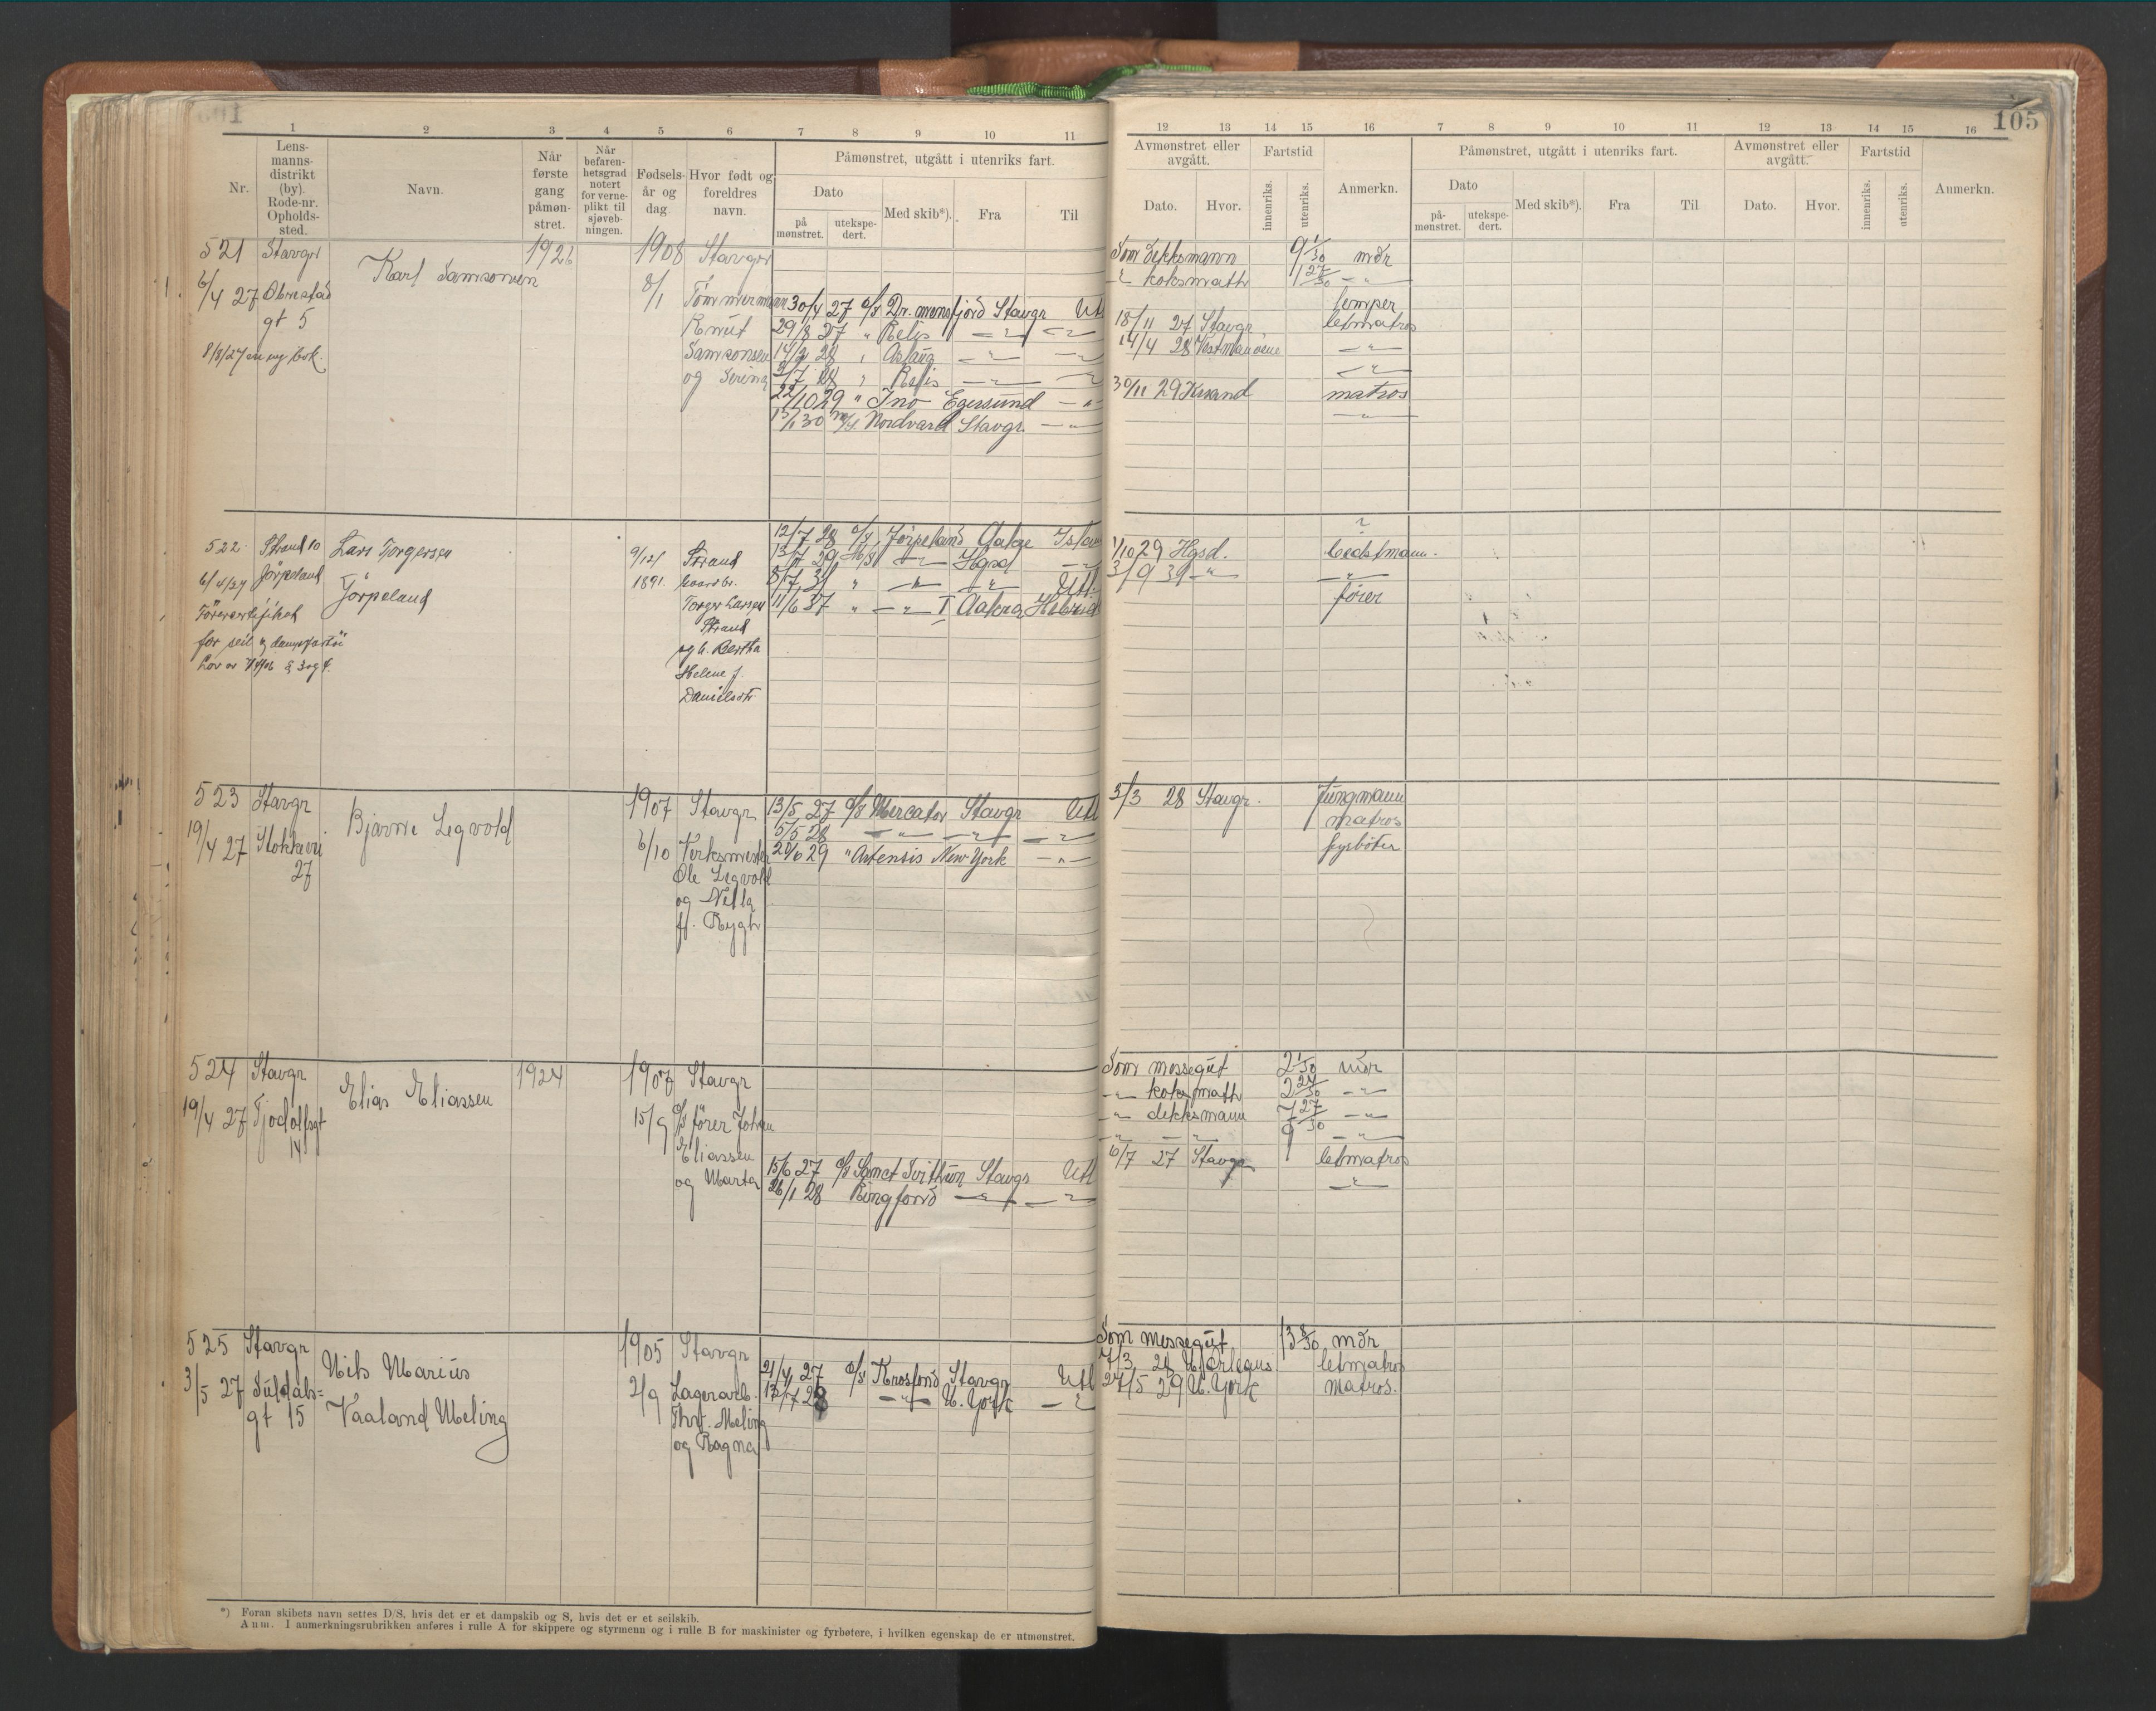 105
1 2 3 4 5 6 7 8 9 10 11
12 13 14 15 16 7 8 9 10 11 12 13 14 15 16
Nr.
Lens-
manns-
distrikt
(by).
Rode-nr.
Opholds-
sted.
Navn.
Når
første
gang
påmøn-
stret.
Når
befaren-
hetsgrad
notert
for verne-
plikt til
sjøveb-
ningen.
Fødsels-
år og
dag.
Hvor født og
foreldres
navn.
Påmønstret, utgått i utenriks fart.
Dato
på
mønstret.
utekspe-
dert.
Med skib*).
Fra
Til
Avmønstret eller
avgått.
Dato.
Hvor.
Fartstid
innenriks.
utenriks.
Anmerkn.
Påmønstret, utgått i utenriks fart.
Dato
på-
mønstret.
utekspe-
dert.
Med skib*).
Fra
Til
Avmønstret eller
avgått.
Dato.
Hvor.
Fartstid
innenriks.
utenriks.
Anmerkn.
521 Stavgr
6/4 27
gt 5
8/8/27 en ny bok.
Karl Samsonsen
1926
1908
8/1
Stavgr
Tømmermann
Knut
Samsonsen
og Serina
30/4 27 D/S Dr.mensfjord Stavgr Utl
29/8 27 " Relis —"— —"—
14/2 28 " Aslaug —"— —"—
2/7 28 " Relis —"— —"—
22/10 29 " Ino Egersund —"—
15/1 30 M/S Nordvard Stavgr. —"—
Som dekksmann 9 1/30 mdr
—"— koksmath 1 27/30 —"—
lemper
18/11 27 Stavgr. letmatros
14/4 28 —"—
—"—
30/11 29 matros
—"—
522 Strand 10
6/4/27 Jørpeland
Førercertifikat
for seil og dampfartøi
Lov av
Lars Torgersen
Jørpeland
9/12
1891.
Strand
Torger Larsen
Strand
og h. Bertha
Helene f.
Danielsdtr
12/7 28 D/S Jørpeland Aakre
13/7 29 M/S —"— Hgsd —"—
8/7 31 " —"— —"— Utl.
11/6 37 " —"— I Aakra
1/10 29 Hgsd. bestmann.
3/9 39 —"— —"—
fører
523 Stavgr
19/4 27
27
Bjarne Legvold
1907
6/10
Stavgr
Verksmester
Ole Legvold
og Nella
ff. Rygh
13/5 27 D/S Mercator Stavgr Utl
5/5 28 —"— —"— —"—
20/6 29 " Artensis New York —"—
3/3 28 Stavgr. Jungmann
matros
fyrbøter
524 Stavgr
19/4 27 Tjodolfsgt
14
Elias Eliassen
1924
1907
15/9
Stavgr
D/S fører Johan
Eliassen
og Marta
15/6 27 D/S Sanct Svithun Stavgr Utl
26/1 28 Ringfond —"— —"—
Som messegut 2 1/30 mdr
—"— koksmath 2 24/30 —"—
—"— dekksmann 7 27/30 —"—
6/7 27 Stavgr letmatros
—"—
525 Stavgr
3/5 27 Suldals=
gt 15
Nils Marius
Vaaland Meling
1905
2/9
Stavgr
Lagerarb.
Thv. Meling
og Ragna
21/4 27 D/S Krosfond Stavgr Utl
13/7 28 —"— N. York —"—
Som messegut 13 8/30 mdr
7/3 28 N. Orleans letmatros
24/5 29 N. York matros.
*) Foran skibets navn settes D/S, hvis det er et dampskib og S, hvis det er et seilskib.
Anm. I anmerkningsrubrikken anføres i rulle A for skippere og styrmenn og i rulle B for maskinister og fyrbøtere, i hvilken egenskap de er utmønstret.